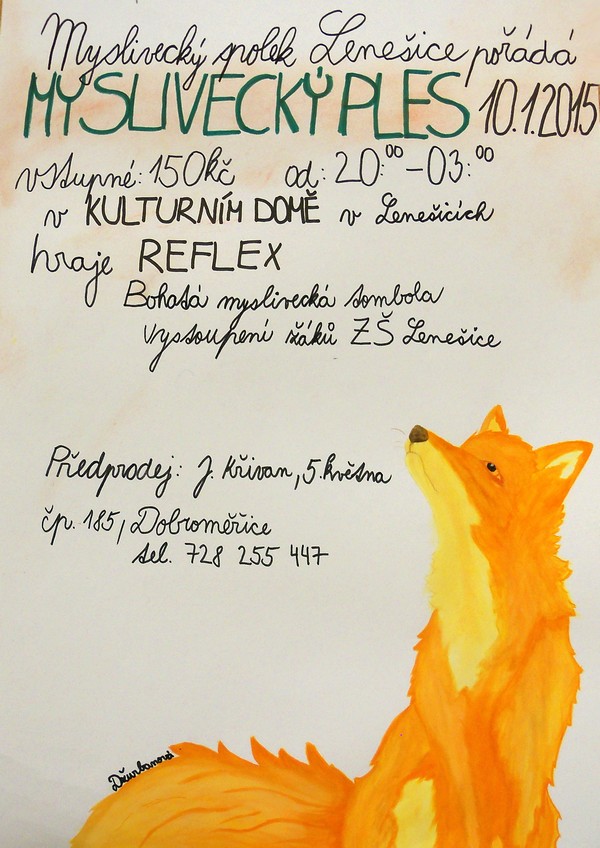 Myslivecký spolek Lenešice pořádá
MYSLIVECKÝ PLES 10.1.2015
vstupné: 150kč od: 20:00-03:00
v KULTURNÍM DOMĚ v Lenešicích
hraje REFLEX
Bohatá myslivecká tombola
Vystoupení žáků ZŠ Lenešice
Předprodej: J. Křivan, 5. května
čp. 185, Dobroměřice
tel. 728 255 447
Džurbanová